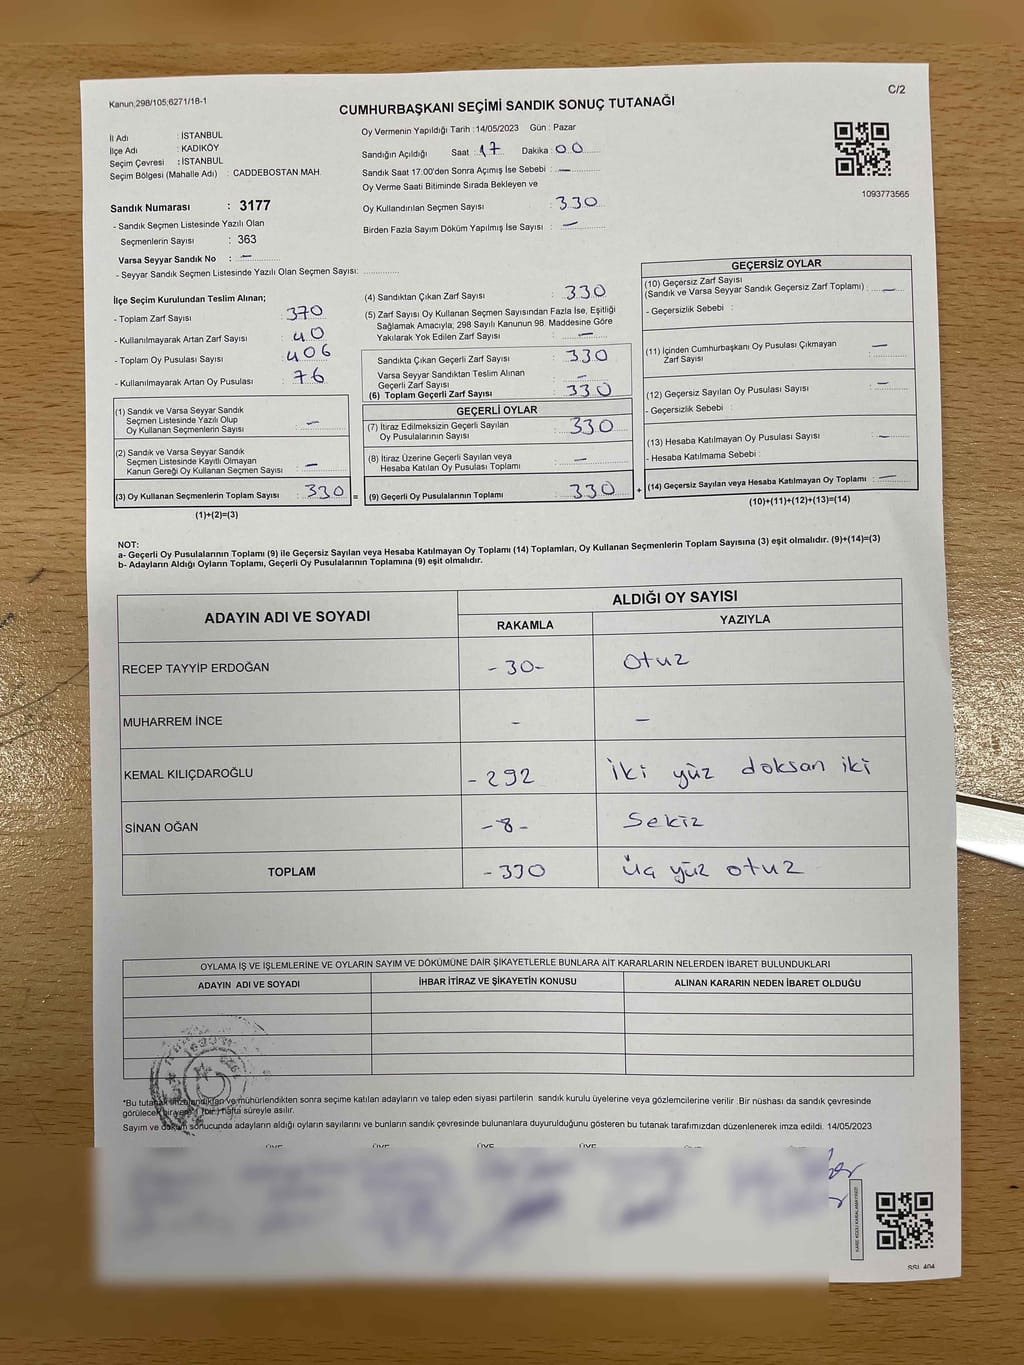 Kanun;298/105;6271/18-1
CUMHURBAŞKANI SEÇİMİ SANDIK SONUÇ TUTANAĞI
C/2
İl Adı : İSTANBUL
İlçe Adı : KADIKÖY
Seçim Çevresi : İSTANBUL
Seçim Bölgesi (Mahalle Adı) : CADDEBOSTAN MAH.
Oy Vermenin Yapıldığı Tarih : 14/05/2023 Gün : Pazar
Sandığın Açıldığı Saat : 17 Dakika : 00
Sandık Saat 17:00'den Sonra Açımış İse Sebebi : —
Oy Verme Saati Bitiminde Sırada Bekleyen ve
Oy Kullandırılan Seçmen Sayısı : 330
Birden Fazla Sayım Döküm Yapılmış İse Sayısı : —
1093773565
Sandık Numarası : 3177
- Sandık Seçmen Listesinde Yazılı Olan
Seçmenlerin Sayısı : 363
Varsa Seyyar Sandık No : —
- Seyyar Sandık Seçmen Listesinde Yazılı Olan Seçmen Sayısı:
İlçe Seçim Kurulundan Teslim Alınan;
- Toplam Zarf Sayısı : 370
- Kullanılmayarak Artan Zarf Sayısı : 40
- Toplam Oy Pusulası Sayısı : 406
- Kullanılmayarak Artan Oy Pusulası : 76
(1) Sandık ve Varsa Seyyar Sandık
Seçmen Listesinde Yazılı Olup
Oy Kullanan Seçmenlerin Sayısı : —
(2) Sandık ve Varsa Seyyar Sandık
Seçmen Listesinde Kayıtlı Olmayan
Kanun Gereği Oy Kullanan Seçmen Sayısı : —
(3) Oy Kullanan Seçmenlerin Toplam Sayısı : 330 =
(1)+(2)=(3)
(4) Sandıktan Çıkan Zarf Sayısı : 330
(5) Zarf Sayısı Oy Kullanan Seçmen Sayısından Fazla İse, Eşitliği
Sağlamak Amacıyla; 298 Sayılı Kanunun 98. Maddesine Göre
Yakılarak Yok Edilen Zarf Sayısı : —
Sandıkta Çıkan Geçerli Zarf Sayısı : 330
Varsa Seyyar Sandıktan Teslim Alınan
Geçerli Zarf Sayısı : —
(6) Toplam Geçerli Zarf Sayısı : 330
GEÇERLİ OYLAR
(7) İtiraz Edilmeksizin Geçerli Sayılan
Oy Pusulalarının Sayısı : 330
(8) İtiraz Üzerine Geçerli Sayılan veya
Hesaba Katılan Oy Pusulası Toplamı : —
(9) Geçerli Oy Pusulalarının Toplamı : 330 +
GEÇERSİZ OYLAR
(10) Geçersiz Zarf Sayısı
(Sandık ve Varsa Seyyar Sandık Geçersiz Zarf Toplamı) : —
- Geçersizlik Sebebi :
(11) İçinden Cumhurbaşkanı Oy Pusulası Çıkmayan
Zarf Sayısı : —
(12) Geçersiz Sayılan Oy Pusulası Sayısı : —
- Geçersizlik Sebebi :
(13) Hesaba Katılmayan Oy Pusulası Sayısı : —
- Hesaba Katılmama Sebebi :
(14) Geçersiz Sayılan veya Hesaba Katılmayan Oy Toplamı : —
(10)+(11)+(12)+(13)=(14)
NOT:
a- Geçerli Oy Pusulalarının Toplamı (9) ile Geçersiz Sayılan veya Hesaba Katılmayan Oy Toplamı (14) Toplamları, Oy Kullanan Seçmenlerin Toplam Sayısına (3) eşit olmalıdır. (9)+(14)=(3)
b- Adayların Aldığı Oyların Toplamı, Geçerli Oy Pusulalarının Toplamına (9) eşit olmalıdır.
ADAYIN ADI VE SOYADI
ALDIĞI OY SAYISI
RAKAMLA YAZIYLA
RECEP TAYYİP ERDOĞAN -30- Otuz
MUHARREM İNCE - —
KEMAL KILIÇDAROĞLU -292 İki yüz doksan iki
SİNAN OĞAN -8- Sekiz
TOPLAM -330 üç yüz otuz
OYLAMA İŞ VE İŞLEMLERİNE VE OYLARIN SAYIM VE DÖKÜMÜNE DAİR ŞİKAYETLERLE BUNLARA AİT KARARLARIN NELERDEN İBARET BULUNDUKLARI
ADAYIN ADI VE SOYADI İHBAR İTİRAZ VE ŞİKAYETİN KONUSU ALINAN KARARIN NEDEN İBARET OLDUĞU
*Bu tutanak imzalandıktan ve mühürlendikten sonra seçime katılan adayların ve talep eden siyasi partilerin sandık kurulu üyelerine veya gözlemcilerine verilir. Bir nüshası da sandık çevresinde
görülecek bir yere 1 (bir) hafta süreyle asılır.
Sayım ve döküm sonucunda adayların aldığı oyların sayılarını ve bunların sandık çevresinde bulunanlara duyurulduğunu gösteren bu tutanak tarafımızdan düzenlenerek imza edildi. 14/05/2023
ÜYE ÜYE ÜYE ÜYE
SSI. 404